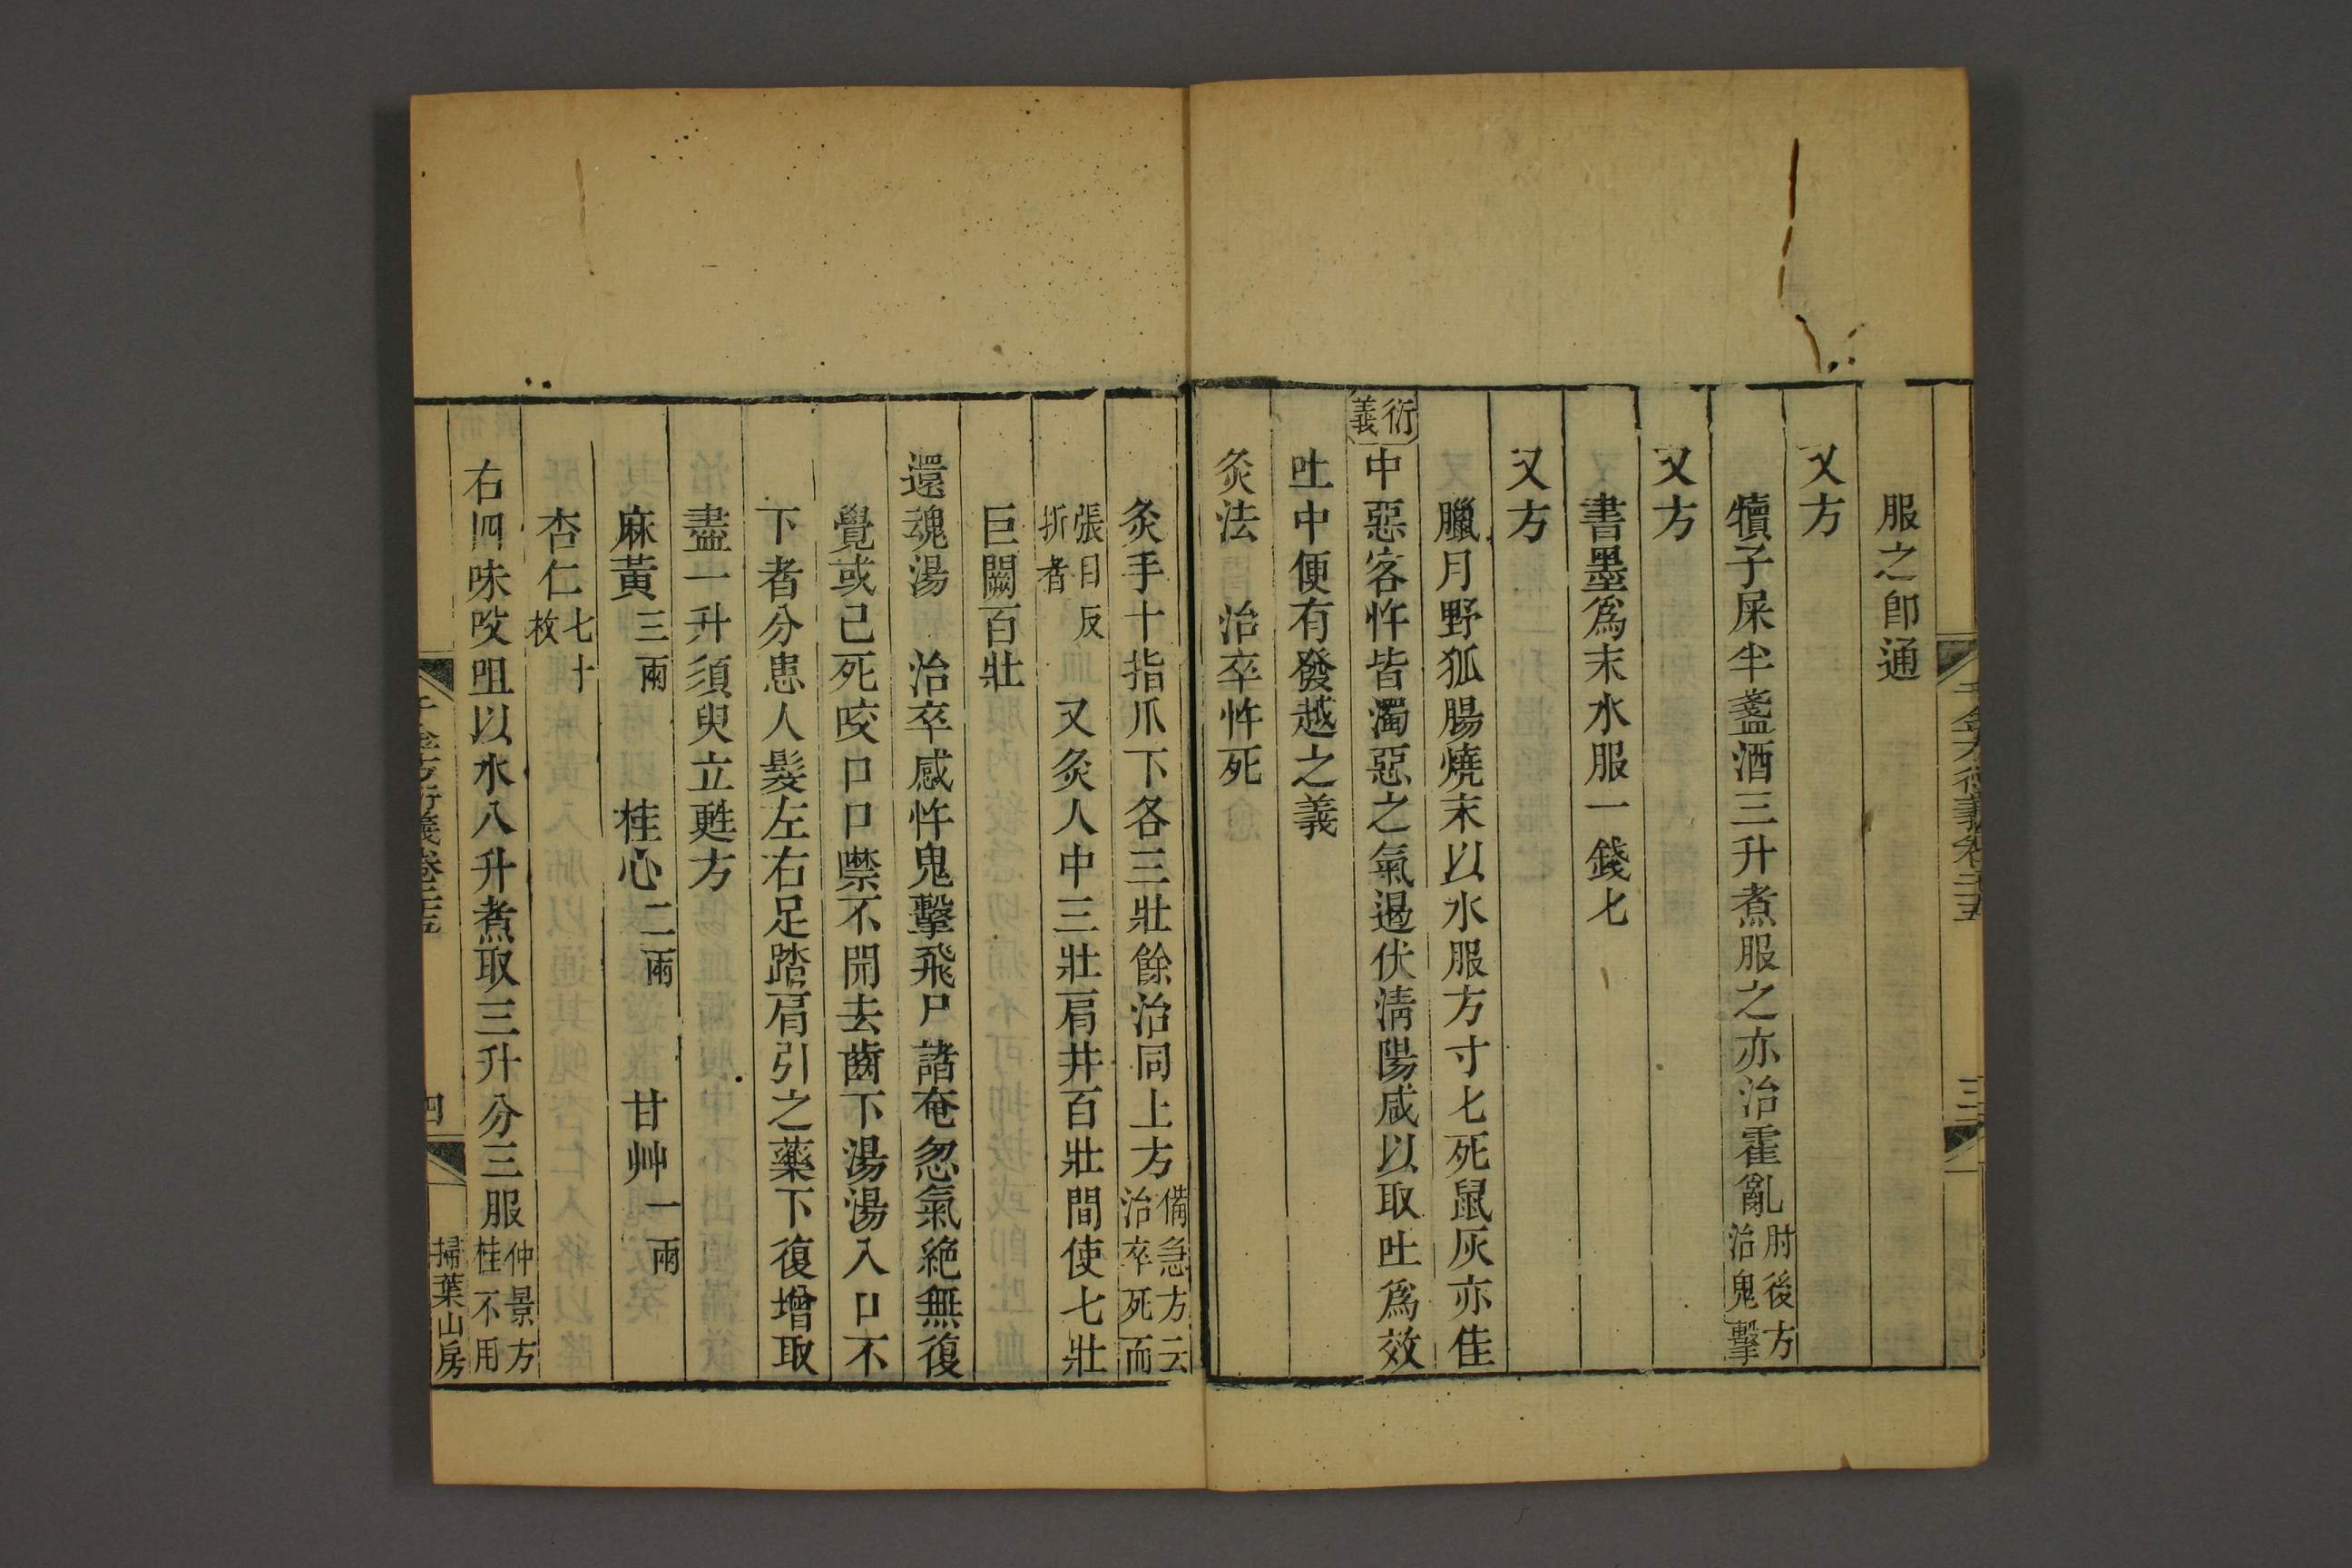 千金方衍義卷二十五
三
服之卽通
又方
犢子屎半盞酒三升煮服之亦治霍亂肘後方治鬼擊
又方
書墨爲末水服一錢匕
又方
臘月野狐腸燒末以水服方寸匕死鼠灰亦佳
衍義中惡客忤皆濁惡之氣遏伏淸陽咸以取吐爲效
吐中便有發越之義
灸法　治卒忤死
灸手十指爪下各三壯餘治同上方備急方云治卒死而
張目反折者　又灸人中三壯肩井百壯間使七壯
巨闕百壯
還魂湯　治卒感忤鬼擊飛尸諸奄忽氣絶無復
覺或已死咬口口噤不開去齒下湯湯入口不
下者分患人髮左右足踏肩引之藥下復增取
盡一升須臾立甦方
麻黃三兩　桂心二兩　甘艸一兩
杏仁七十枚
右四味㕮咀以水八升煮取三升分三服仲景方桂不用
千金方衍義卷二十五
四
掃葉山房